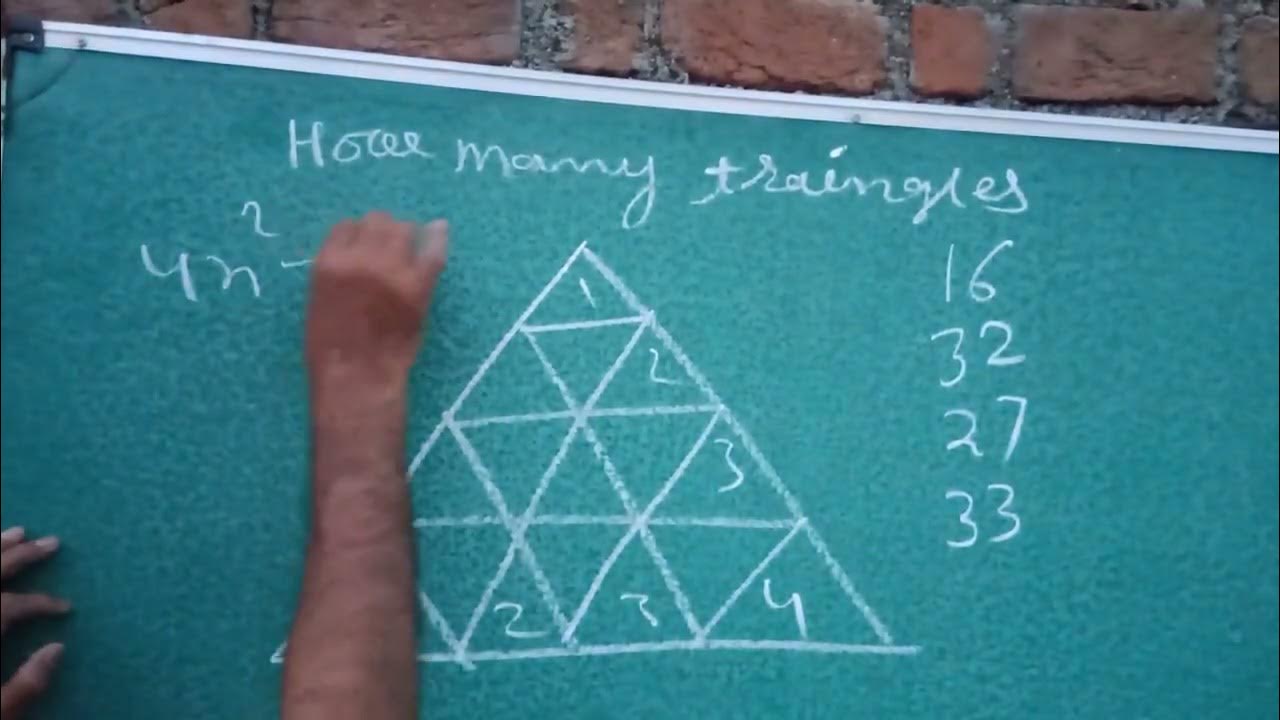 How many traingles
4n² -
16
32
27
33
1
2
3
2 3 4